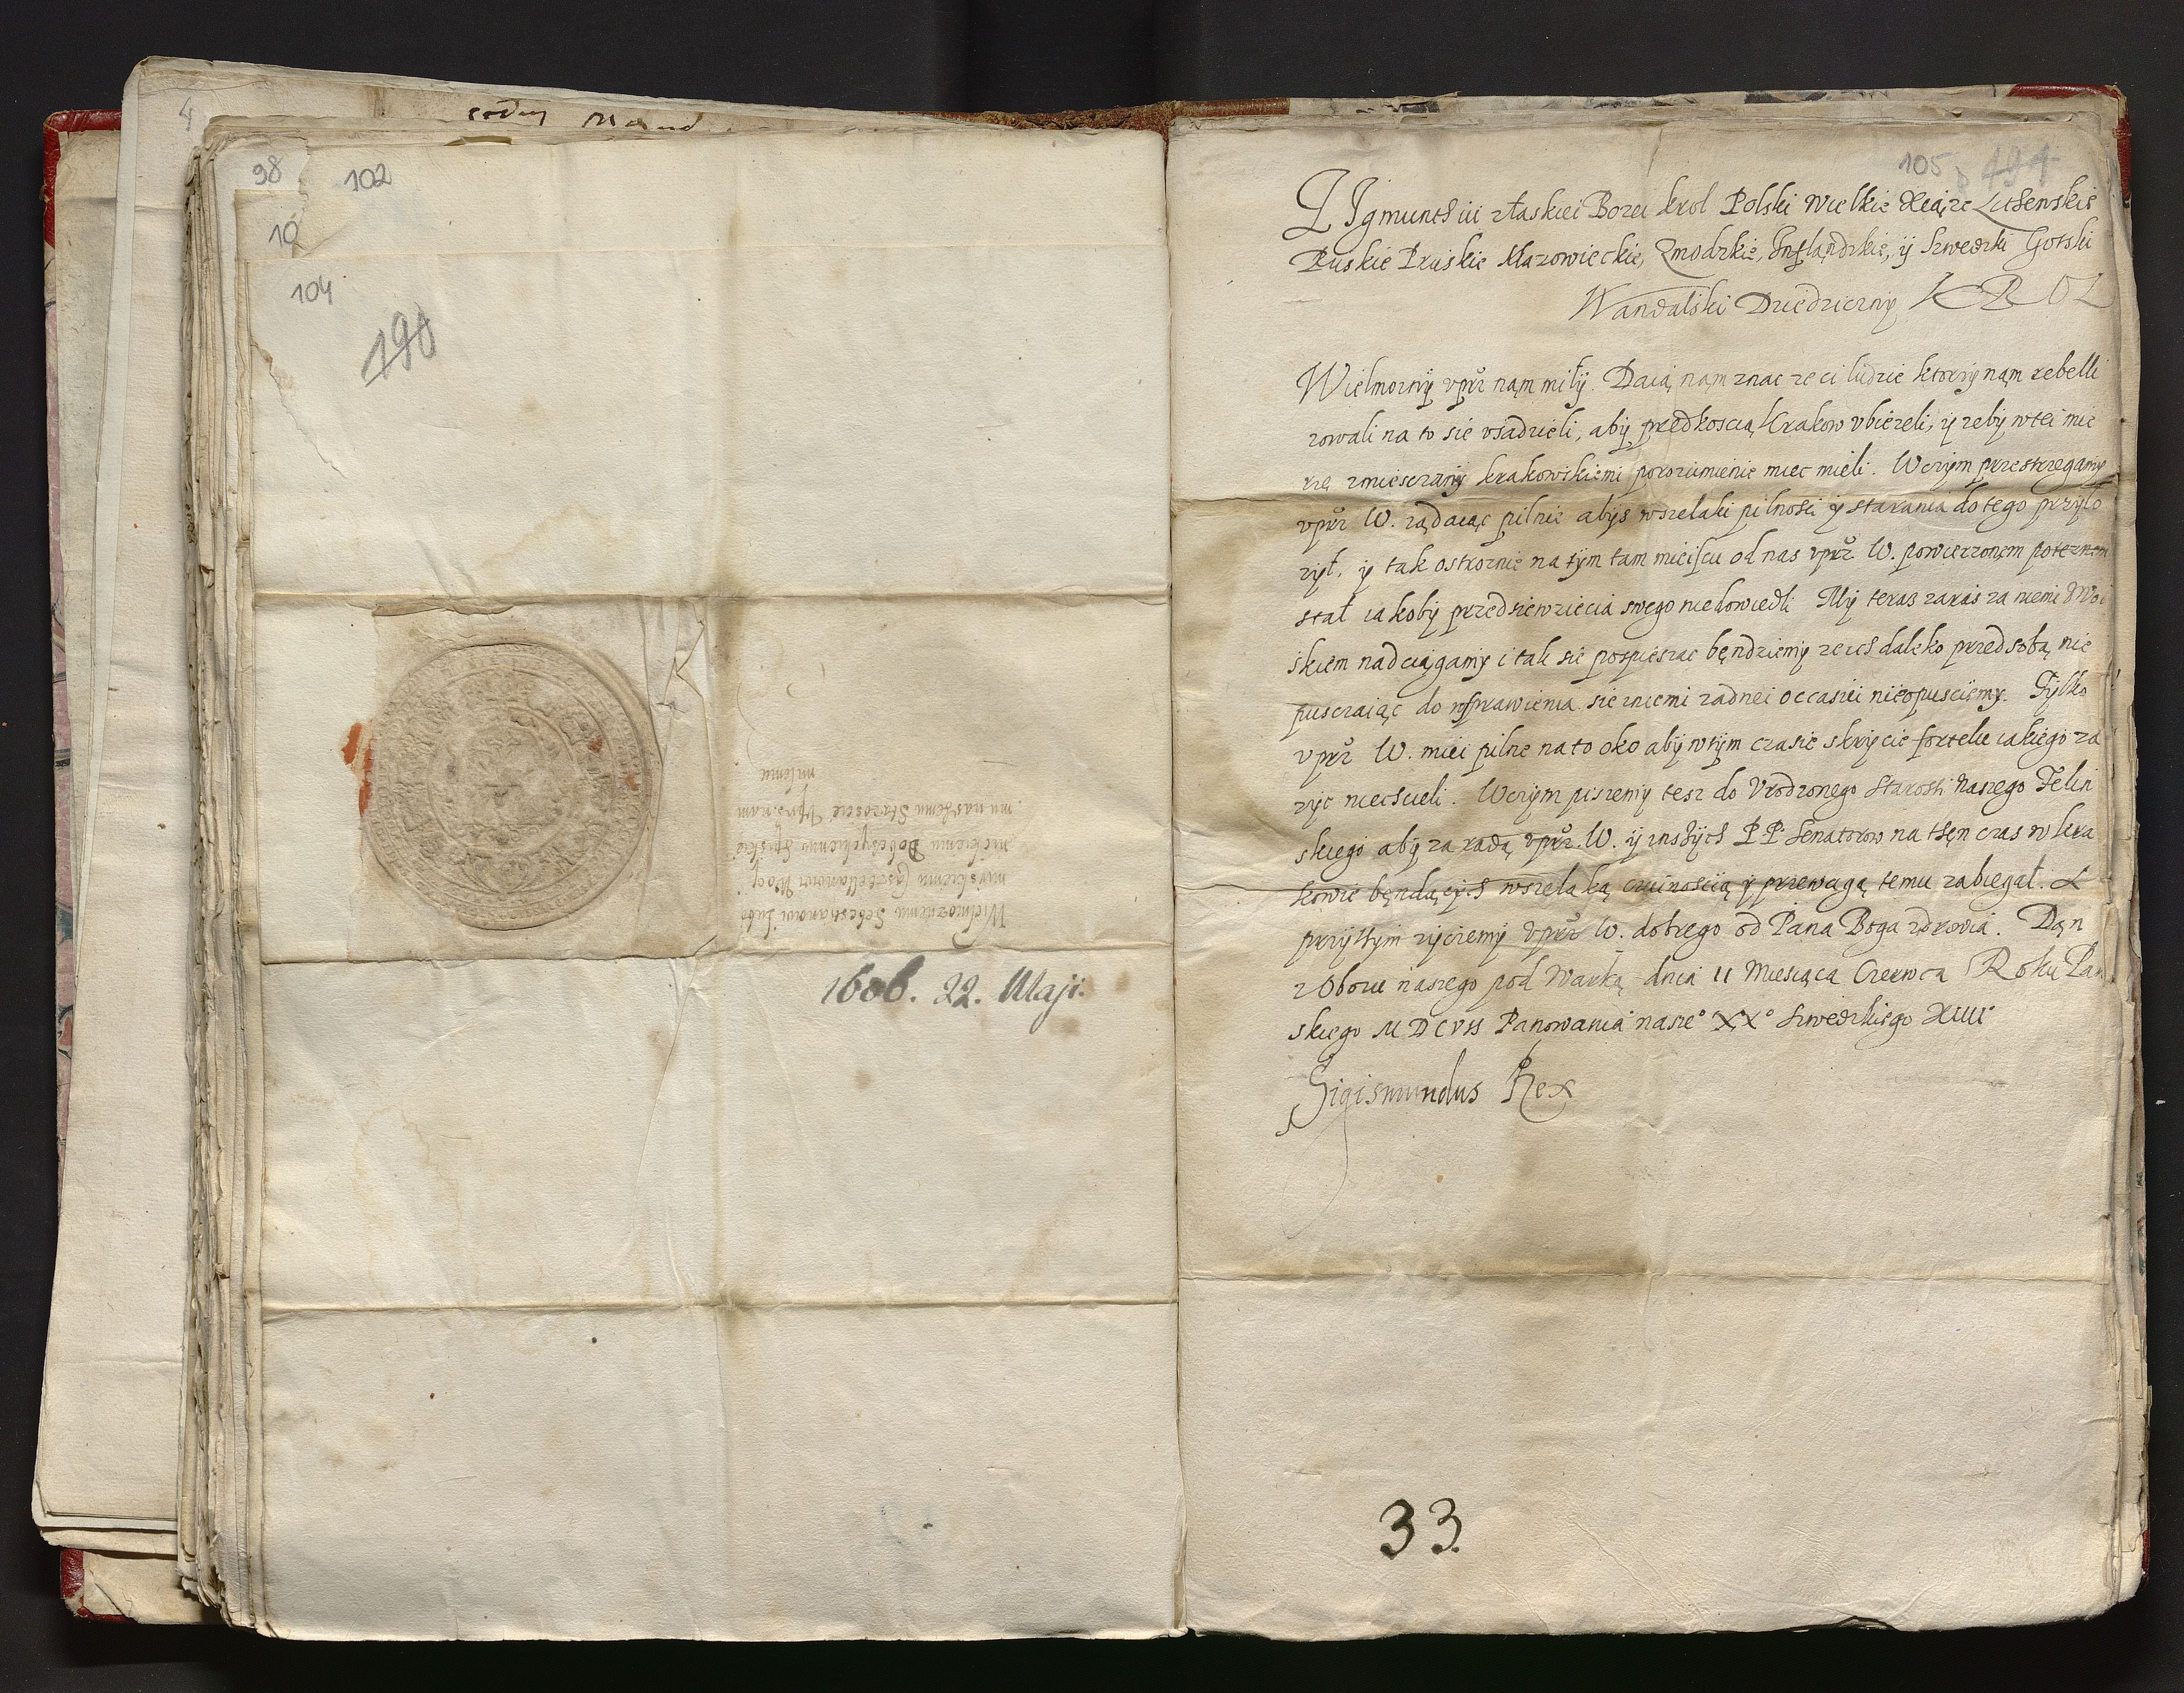 4
98
102
10
104
190
Wielmoznemu Sebestianowi Lubo
mirskiemu Casztellanowi Woÿ
nickiemu Dobczÿckiemu Spiskie
mu naszemu Staroscie Vprz. nam
milemu
1606. 22. Maji.
105
194
ZIgmunth iii złaskiei Bozei krol Polski Wielkie Xiąze Lithenskie
Ruskie Pruskie Mazowieckie, Zmodzkie, Inflandzkie, ÿ Szwedzki Gotski
Wandalski Dziedzicznÿ KROL
Wielmoznÿ vprz nąm miłÿ. Daią nąm znac ze ci ludzie ktorzÿ nąm rebelli
zowali na to sie vsadzieli, abÿ prędkoscią Krakow vbiezeli, ÿ zebÿ wtei mie
rze zmiesczanÿ krakowskiemi porozumienie miec mieli. Wczÿm przestrzegamÿ
vprz W. ządaiąc pilnie abÿs wszelaki pilnosci ÿ starania do tego przÿło
zÿł, ÿ tak ostroznie na tÿm tam mieiscu od nas vprz W. powierzonem
stał iakobÿ przedsiewziecia swego niedowiedli Mÿ teras zaras za niemi Woi
skiem nadciągamÿ i tak sie pospieszac bęndziemÿ ze ich daleko przed sobą nie
pusczaiąc do rosprawienia sie zniemi zadnei occasiei nieopuscimÿ. Tÿlko
vprz W. miei pilne na to oko abÿ wtÿm czasie skrÿcie fortelu iakiego za
zÿc niechcieli. Wczÿm piszemÿ tesz do Vrodzonego Starosti Naszego Felin
skiego abÿ za radą vprz. W. ÿ inszÿch PP Senatorow na thęn czas w kra
kowie bęndącÿch wszelaką czuinoscią ÿ przewagą temu zabiegał.
przÿtÿm zÿczemÿ vprz W. dobrego od Pana Boga zdrowia. Dąn
z Obozu naszego pod Warką dnia 11 Miesiąca Czerwca Roku Pan
skiego MDCVII Panowania nasze° XX° Szwedzkiego XIIII
Sigismundus Rex
33